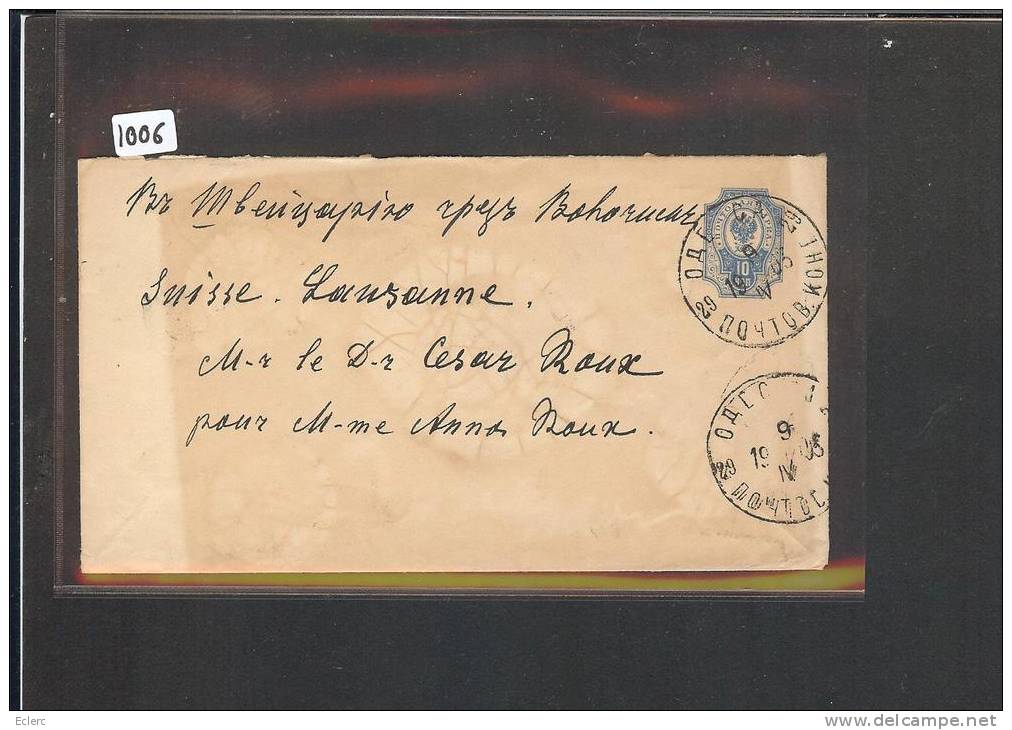 1006
Въ Швейцарію чрезъ
Suisse. Lausanne.
M-r le D-r Cesar Roux
pour M-me Anna Roux.
10
ОДЕССА
9
19 IV 05
29 ПОЧТОВ. КОНТ.
ОДЕС
9
19 IV 05
29
Eclerc
www.delcampe.net